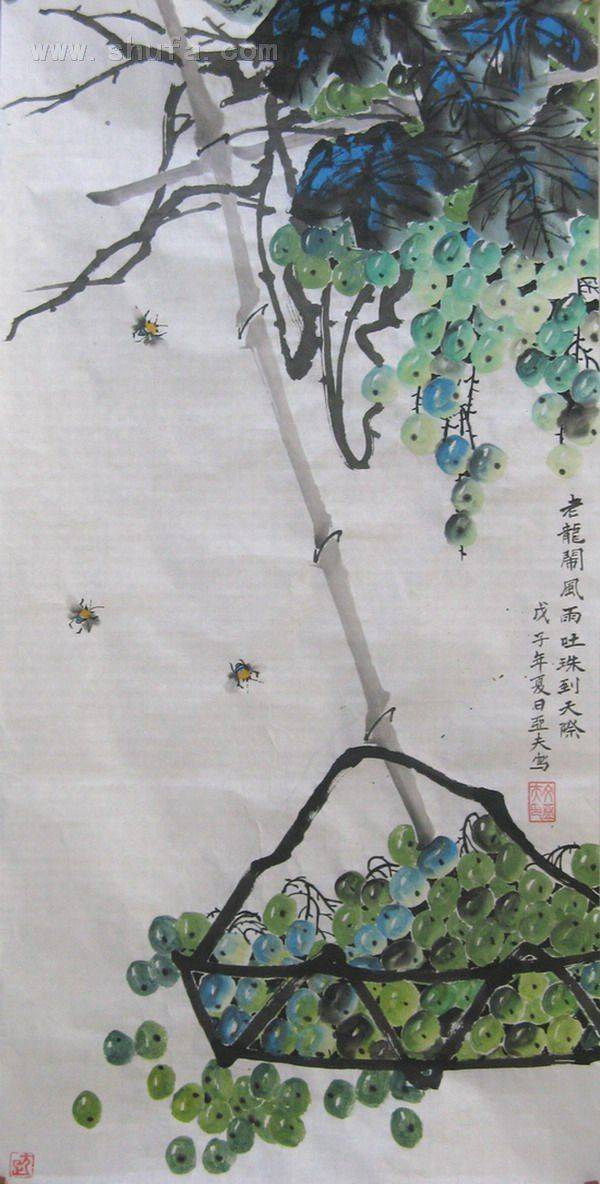 www.shufa.com
老龍鬧風雨吐珠到天際
戊子年夏日亚夫写